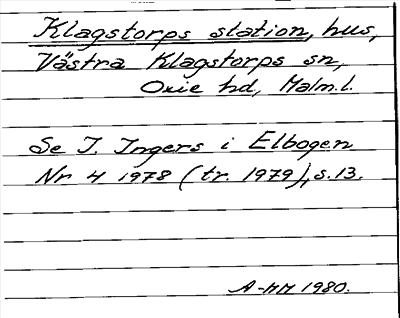 Klagstorps station, hus,
Västra Klagstorps sn,
Oxie hd, Malm.l.
Se I. Ingers i Elbogen
Nr 4 1978 (tr. 1979), s. 13.
A-HM 1980.